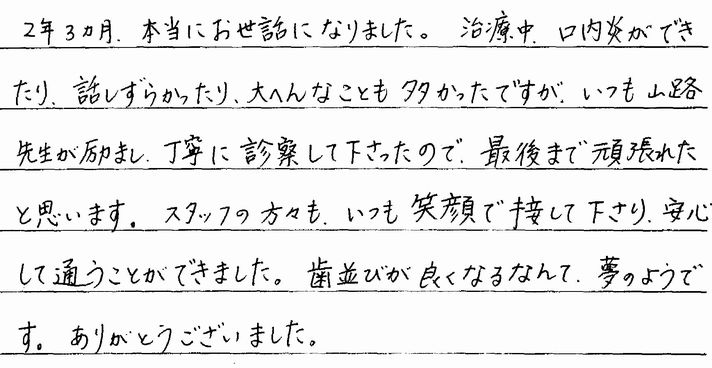 2年3ヵ月、本当にお世話になりました。 治療中、口内炎ができ
たり、話しずらかったり、大へんなことも多かったですが、いつも山路
先生が励まし、丁寧に診察して下さったので、最後まで頑張れた
と思います。 スタッフの方々も、いつも笑顔で接して下さり、安心
して通うことができました。 歯並びが良くなるなんて、夢のようで
す。 ありがとうございました。